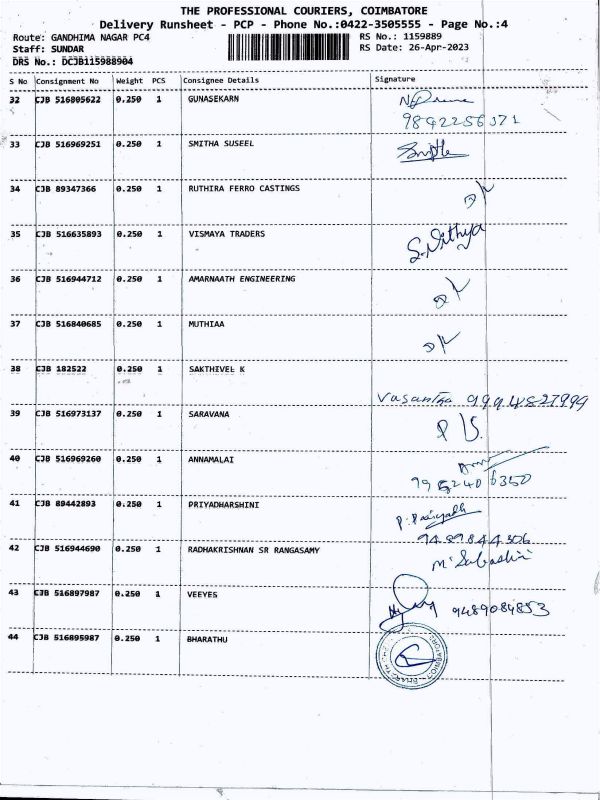 THE PROFESSIONAL COURIERS, COIMBATORE
Delivery Runsheet - PCP - Phone No.:0422-3505555 - Page No.:4
Route: GANDHIMA NAGAR PC4 RS No.: 1159889
Staff: SUNDAR RS Date: 26-Apr-2023
DRS No.: DCJB115988904
S No Consignment No Weight PCS Consignee Details Signature
32 CJB 516805622 0.250 1 GUNASEKARN
9842256371
33 CJB 516969251 0.250 1 SMITHA SUSEEL Smitha
34 CJB 89347366 0.250 1 RUTHIRA FERRO CASTINGS
35 CJB 516635893 0.250 1 VISMAYA TRADERS S. Nithya
36 CJB 516944712 0.250 1 AMARNAATH ENGINEERING
37 CJB 516840685 0.250 1 MUTHIAA
38 CJB 182522 0.250 1 SAKTHIVEL K
Vasantha 9994827999
39 CJB 516973137 0.250 1 SARAVANA
40 CJB 516969260 0.250 1 ANNAMALAI
41 CJB 89442893 0.250 1 PRIYADHARSHINI
9489844306
42 CJB 516944690 0.250 1 RADHAKRISHNAN SR RANGASAMY M. Subashini
43 CJB 516897987 0.250 1 VEEYES 9489084853
44 CJB 516895987 0.250 1 BHARATHU